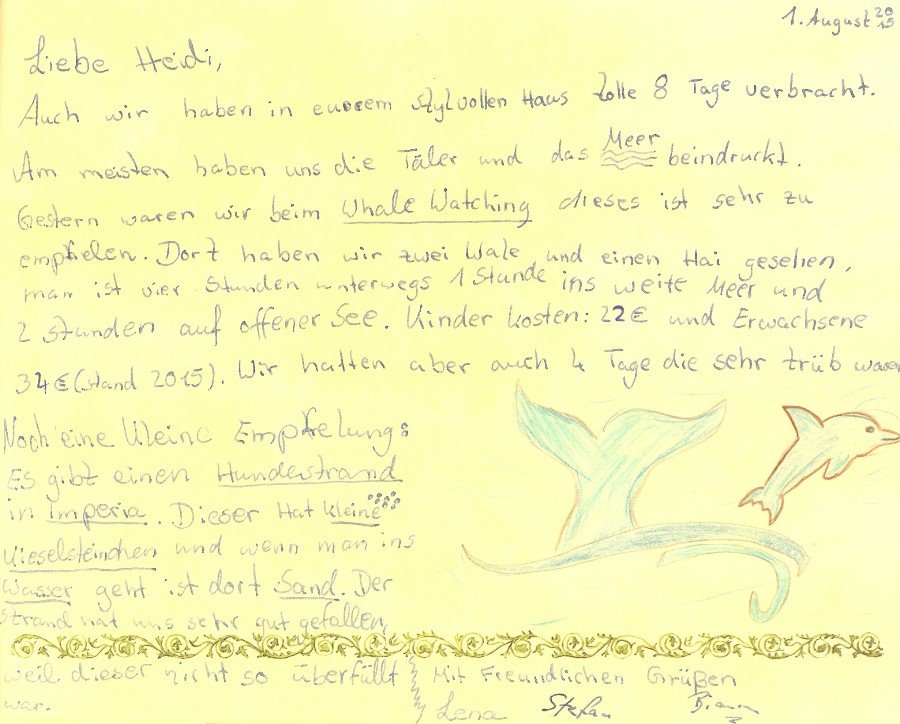 1. August 2015
Liebe Heidi,
Auch wir haben in eurerem stylvollen Haus tolle 8 Tage verbracht.
Am meisten haben uns die Täler und das Meer beindruckt.
Gestern waren wir beim Whale Watching dieses ist sehr zu
empfhelen. Dort haben wir zwei Wale und einen Hai gesehen,
man ist vier Stunden unterwegs 1 Stunde ins weite Meer und
2 stunden auf offener See. Kinder kosten: 22€ und Erwachsene
34€ (stand 2015). Wir hatten aber auch 4 Tage die sehr trüb waren
Noch eine kleine Empfhelung:
Es gibt einen Hundestrand
in Imperia. Dieser Hat kleine
Kieselsteinchen und wenn man ins
Wasser geht ist dort Sand. Der
Strand hat uns sehr gut gefallen,
weil dieser nicht so überfüllt
war.
Mit Freundlichen Grüßen
Lena Stefan